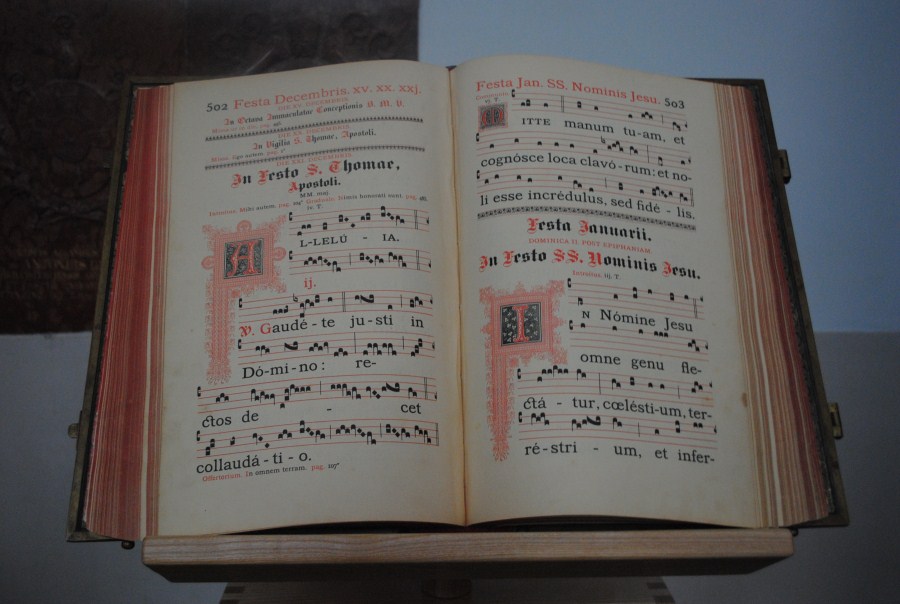 502 Festa Decembris. xv. xx. xxj.
DIE XV. DECEMBRIS.
In Octava Immaculatæ Conceptionis B. M. V.
DIE XX. DECEMBRIS.
In Vigilia S. Thomæ, Apostoli.
DIE XXI. DECEMBRIS.
In Festo S. Thomae,
Apostoli.
MM. maj.
Introitus. Mihi autem. pag.
iv. T.
A
L-LELÚ - IA.
ij.
℣. Gaudé - te ju-sti in
Dó-mi-no: re-
ctos de - cet
collaudá - ti - o.
Offertorium. In omnem terram. pag. 107*
Festa Jan. SS. Nominis Jesu. 503
Communio.
M
ITTE manum tu-am, et
cognósce loca clavó - rum: et no-
li esse incrédulus, sed fidé - lis.
Festa Januarii.
DOMINICA II. POST EPIPHANIAM.
In Festo SS. Nominis Jesu.
Introitus. iij. T.
I
N Nómine Jesu
omne genu fle-
ctá - tur, cœlésti-um, ter-
ré-stri - um, et infer-